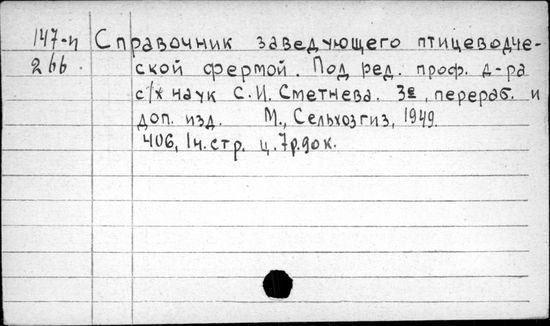 147-п Справочник заведующего птицеводче-
266 ской фермой. Под ред. проф. д-ра
с/х наук С.И. Сметнева. 3е, перераб. и
доп. изд. М., Сельхозгиз, 1949.
406, 1н. стр. ц. 7р. 90к.